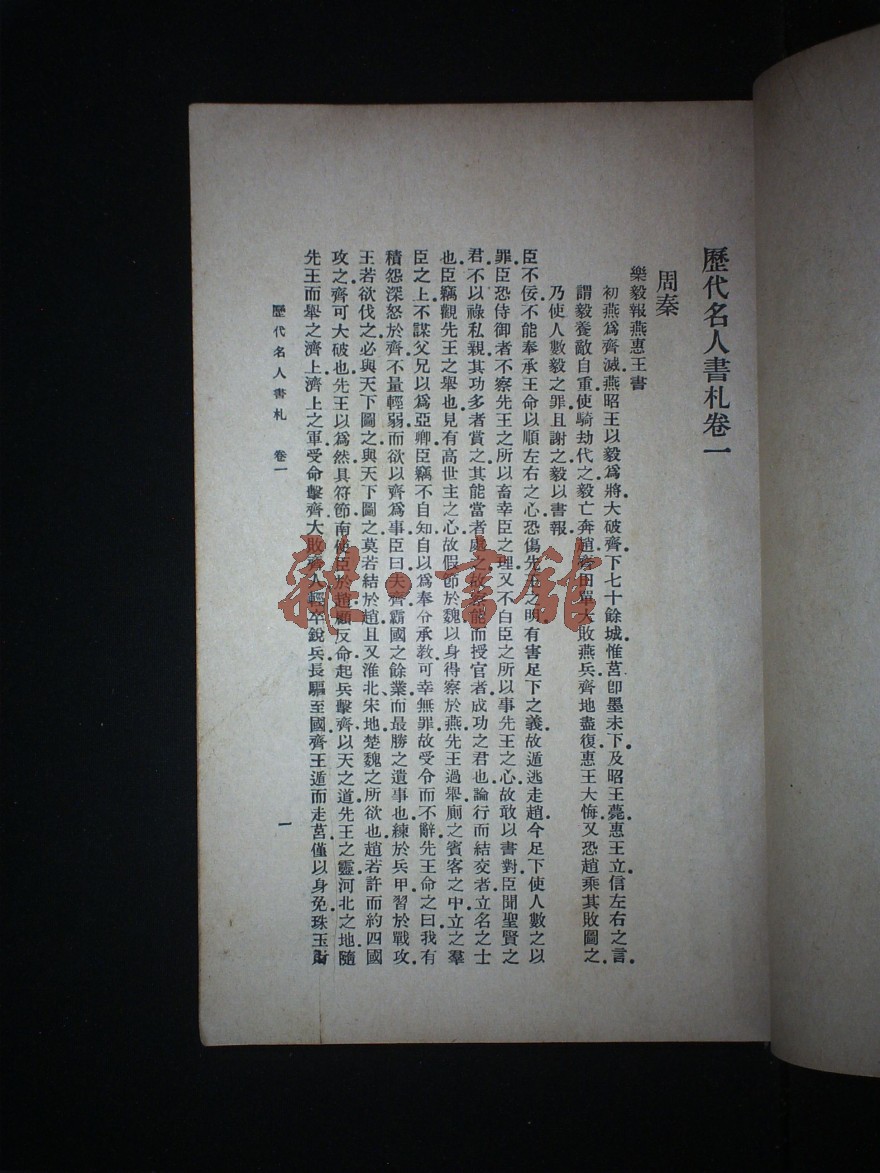 歷代名人書札卷一
周秦
樂毅報燕惠王書
初燕爲齊滅燕昭王以毅爲將大破齊下七十餘城惟莒卽墨未下及昭王薨惠王立信左右之言
謂毅養敵自重使騎劫代之毅亡奔趙齊田單大敗燕兵齊地盡復惠王大悔又恐趙乘其敗圖之
乃使人數毅之罪且謝之毅以書報
臣不佞不能奉承王命以順左右之心恐傷先王之明有害足下之義故遁逃走趙今足下使人數之以
罪臣恐侍御者不察先王之所以畜幸臣之理又不白臣之所以事先王之心故敢以書對臣聞聖賢之
君不以祿私親其功多者賞之其能當者處之故察能而授官者成功之君也論行而結交者立名之士
也臣竊觀先王之舉也見有高世主之心故假節於魏以身得察於燕先王過舉廁之賓客之中立之羣
臣之上不謀父兄以爲亞卿臣竊不自知自以爲奉令承教可幸無罪故受令而不辭先王命之曰我有
積怨深怒於齊不量輕弱而欲以齊爲事臣曰夫齊霸國之餘業而最勝之遺事也練於兵甲習於戰攻
王若欲伐之必與天下圖之與天下圖之莫若結於趙且又淮北宋地楚魏之所欲也趙若許而約四國
攻之齊可大破也先王以爲然具符節南使臣於趙顧反命起兵擊齊以天之道先王之靈河北之地隨
先王而舉之濟上濟上之軍受命擊齊大敗齊人輕卒銳兵長驅至國齊王遁而走莒僅以身免珠玉財
歷代名人書札 卷一
一
雜·書館